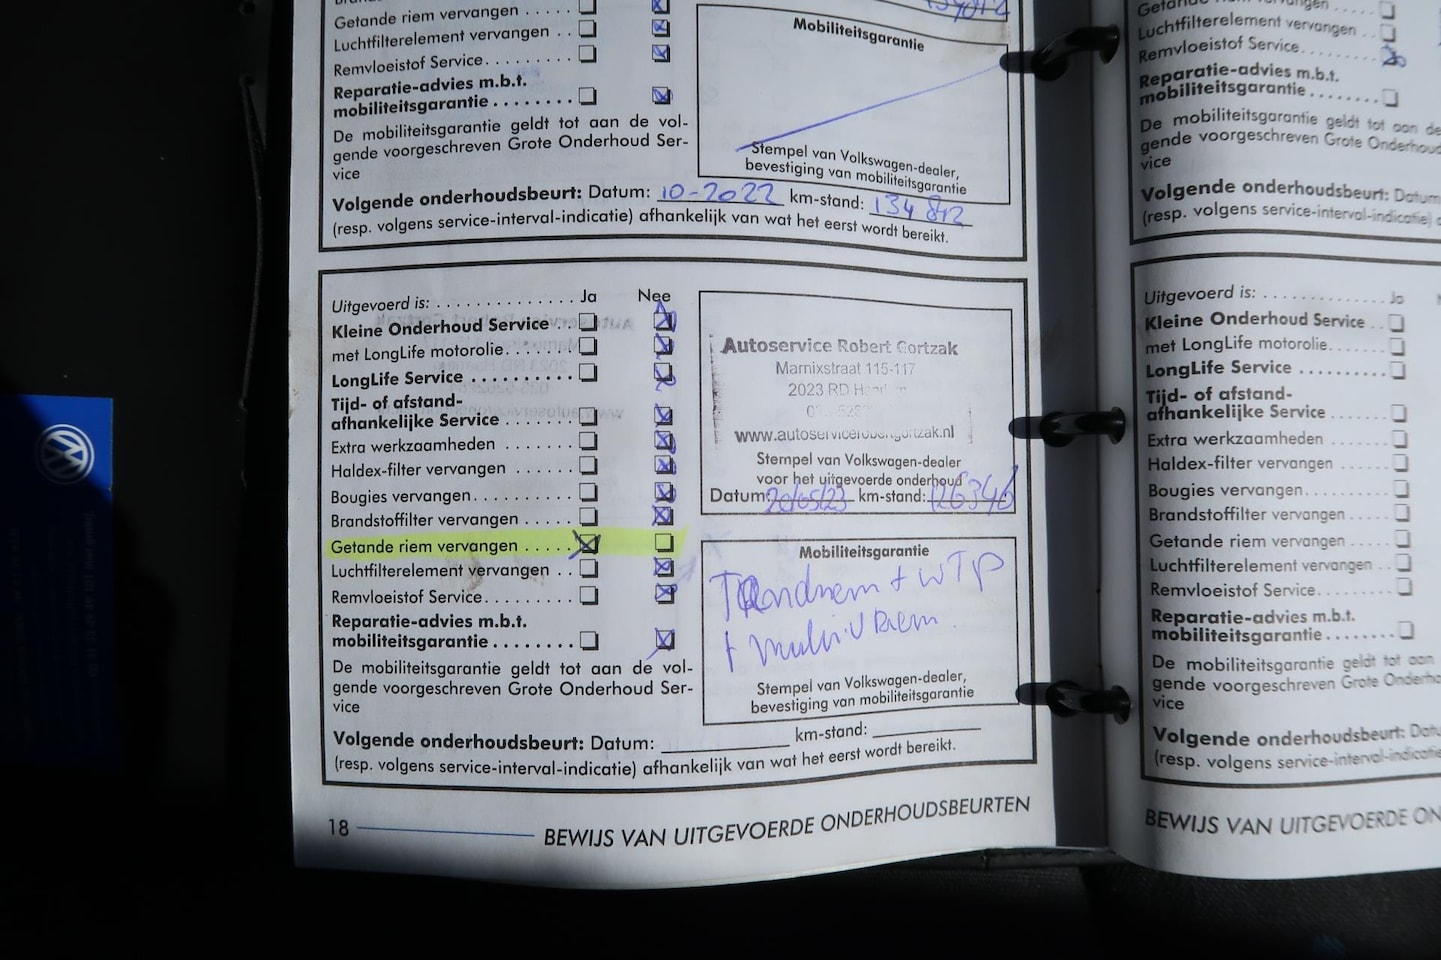 Getande riem vervangen . . . . .
Luchtfilterelement vervangen . .
Remvloeistof Service. . . . . . . . .
Reparatie-advies m.b.t.
mobiliteitsgarantie . . . . . . . .
De mobiliteitsgarantie geldt tot aan de vol-
gende voorgeschreven Grote Onderhoud Ser-
vice
Mobiliteitsgarantie
Stempel van Volkswagen-dealer,
bevestiging van mobiliteitsgarantie
Volgende onderhoudsbeurt: Datum: 10-2022 km-stand: 134 842
(resp. volgens service-interval-indicatie) afhankelijk van wat het eerst wordt bereikt.
Uitgevoerd is: . . . . . . . . . . . . . . . Ja Nee
Kleine Onderhoud Service . .
met LongLife motorolie. . . . . . .
LongLife Service . . . . . . . . . .
Tijd- of afstand-
afhankelijke Service . . . . . . .
Extra werkzaamheden . . . . . . .
Haldex-filter vervangen . . . . . .
Bougies vervangen. . . . . . . . . .
Brandstoffilter vervangen . . . . .
Getande riem vervangen . . . . .
Luchtfilterelement vervangen . .
Remvloeistof Service. . . . . . . . .
Reparatie-advies m.b.t.
mobiliteitsgarantie . . . . . . . .
De mobiliteitsgarantie geldt tot aan de vol-
gende voorgeschreven Grote Onderhoud Ser-
vice
Autoservice Robert Gortzak
Marnixstraat 115-117
2023 RD
www.autoservicerobertgortzak.nl
Stempel van Volkswagen-dealer
voor het uitgevoerde onderhoud
Datum: 20/05/23 km-stand: 126346
Mobiliteitsgarantie
Tandriem + WTP
+ Multi-V Riem.
Stempel van Volkswagen-dealer,
bevestiging van mobiliteitsgarantie
Volgende onderhoudsbeurt: Datum: km-stand:
(resp. volgens service-interval-indicatie) afhankelijk van wat het eerst wordt bereikt.
18 BEWIJS VAN UITGEVOERDE ONDERHOUDSBEURTEN
Luchtfilterelement vervangen . .
Remvloeistof Service. . . . . . . . .
Reparatie-advies m.b.t.
mobiliteitsgarantie . . . . . . . .
De mobiliteitsgarantie geldt tot aan de
gende voorgeschreven Grote Onderhoud
vice
Volgende onderhoudsbeurt: Datum
(resp. volgens service-interval-indicatie)
Uitgevoerd is: . . . . . . . . . . . . . . . Ja
Kleine Onderhoud Service . .
met LongLife motorolie. . . . . . .
LongLife Service . . . . . . . . . .
Tijd- of afstand-
afhankelijke Service . . . . . . .
Extra werkzaamheden . . . . . . .
Haldex-filter vervangen . . . . . .
Bougies vervangen. . . . . . . . . .
Brandstoffilter vervangen . . . . .
Getande riem vervangen . . . . .
Luchtfilterelement vervangen . .
Remvloeistof Service. . . . . . . . .
Reparatie-advies m.b.t.
mobiliteitsgarantie . . . . . . . .
De mobiliteitsgarantie geldt tot aan
gende voorgeschreven Grote
vice
Volgende onderhoudsbeurt:
(resp. volgens service-interval-indicatie)
BEWIJS VAN UITGEVOERDE